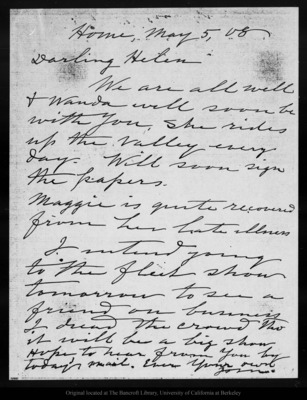 Home, May 5, 08.
Darling Helen
We are all well
& Wanda will soon be
with you, She rides
up the Valley every
day. Will soon sign
the papers.
Maggie is quite recovered
from her late illness
I intend going
to the fleet show
tomorrow to see a
friend on business
I dread the crowd tho
it will be a big show
Hope to hear from you by
today's mail. Ever Your own
Original located at The Bancroft Library, University of California at Berkeley